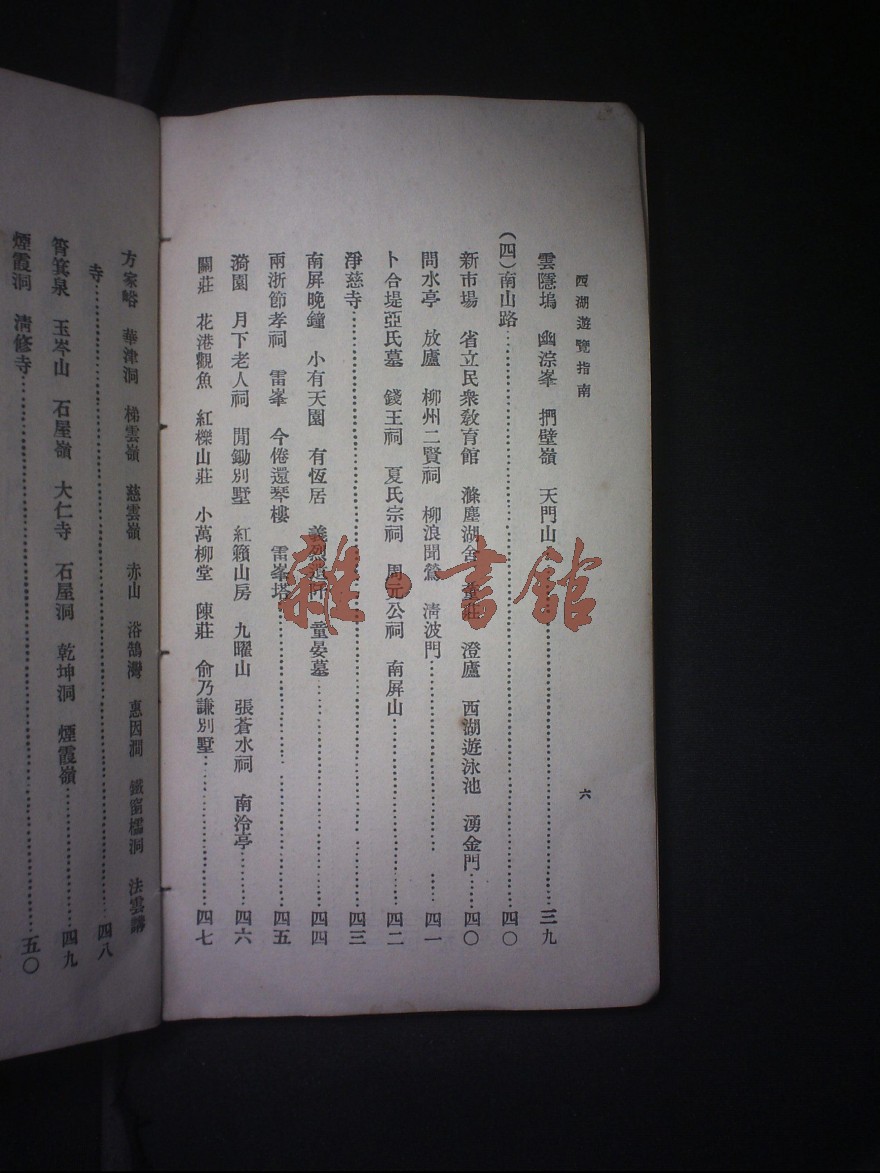 西湖遊覽指南
六
雲隱塢 幽淙峯 捫壁嶺 天門山 三九
(四)南山路 四〇
新市場 省立民衆敎育館 滌塵湖舍 莊 澄廬 西湖遊泳池 湧金門 四〇
問水亭 放廬 柳州二賢祠 柳浪聞鶯 淸波門 四一
卜合堤亞氏墓 錢王祠 夏氏宗祠 周元公祠 南屏山 四二
淨慈寺 四三
南屏晚鐘 小有天園 有恆居 義烈遺阡 童晏墓 四四
兩浙節孝祠 雷峯 今倦還琴樓 雷峯塔 四五
漪園 月下老人祠 閒鋤別墅 紅籟山房 九曜山 張蒼水祠 南泠亭 四六
關莊 花港觀魚 紅櫟山莊 小萬柳堂 陳莊 俞乃謙別墅 四七
方家峪 華津洞 梯雲嶺 慈雲嶺 赤山 浴鵠灣 惠因澗 鐵窗櫺洞 法雲講
寺 四八
筲箕泉 玉岑山 石屋嶺 大仁寺 石屋洞 乾坤洞 煙霞嶺 四九
煙霞洞 淸修寺 五〇
雜·書館